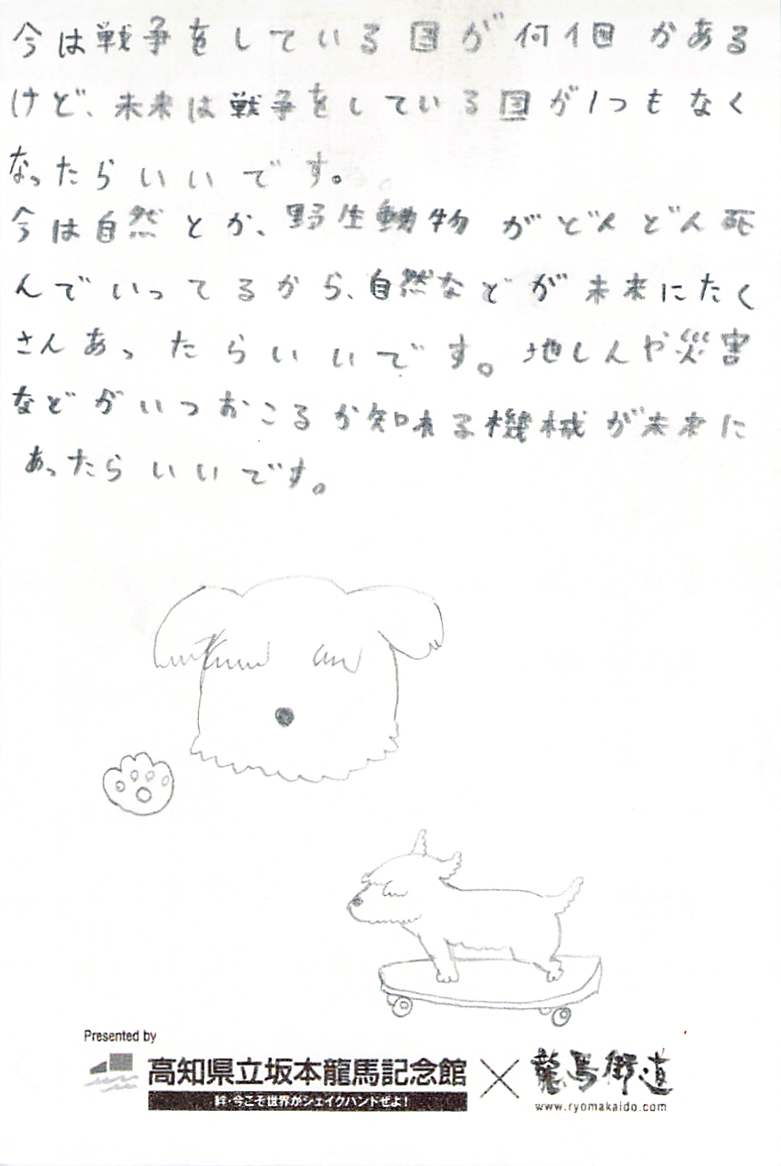 今は戦争をしている国が何個かある
けど、未来は戦争をしている国が1つもなく
なったらいいです。
今は自然とか、野生動物がどんどん死
んでいってるから、自然などが未来にたく
さんあったらいいです。地しんや災害
などがいつおこるか知れる機械が未来に
あったらいいです。
Presented by
高知県立坂本龍馬記念館×龍馬街道
絆・今こそ世界がシェイクハンドぜよ!
www.ryomakaido.com